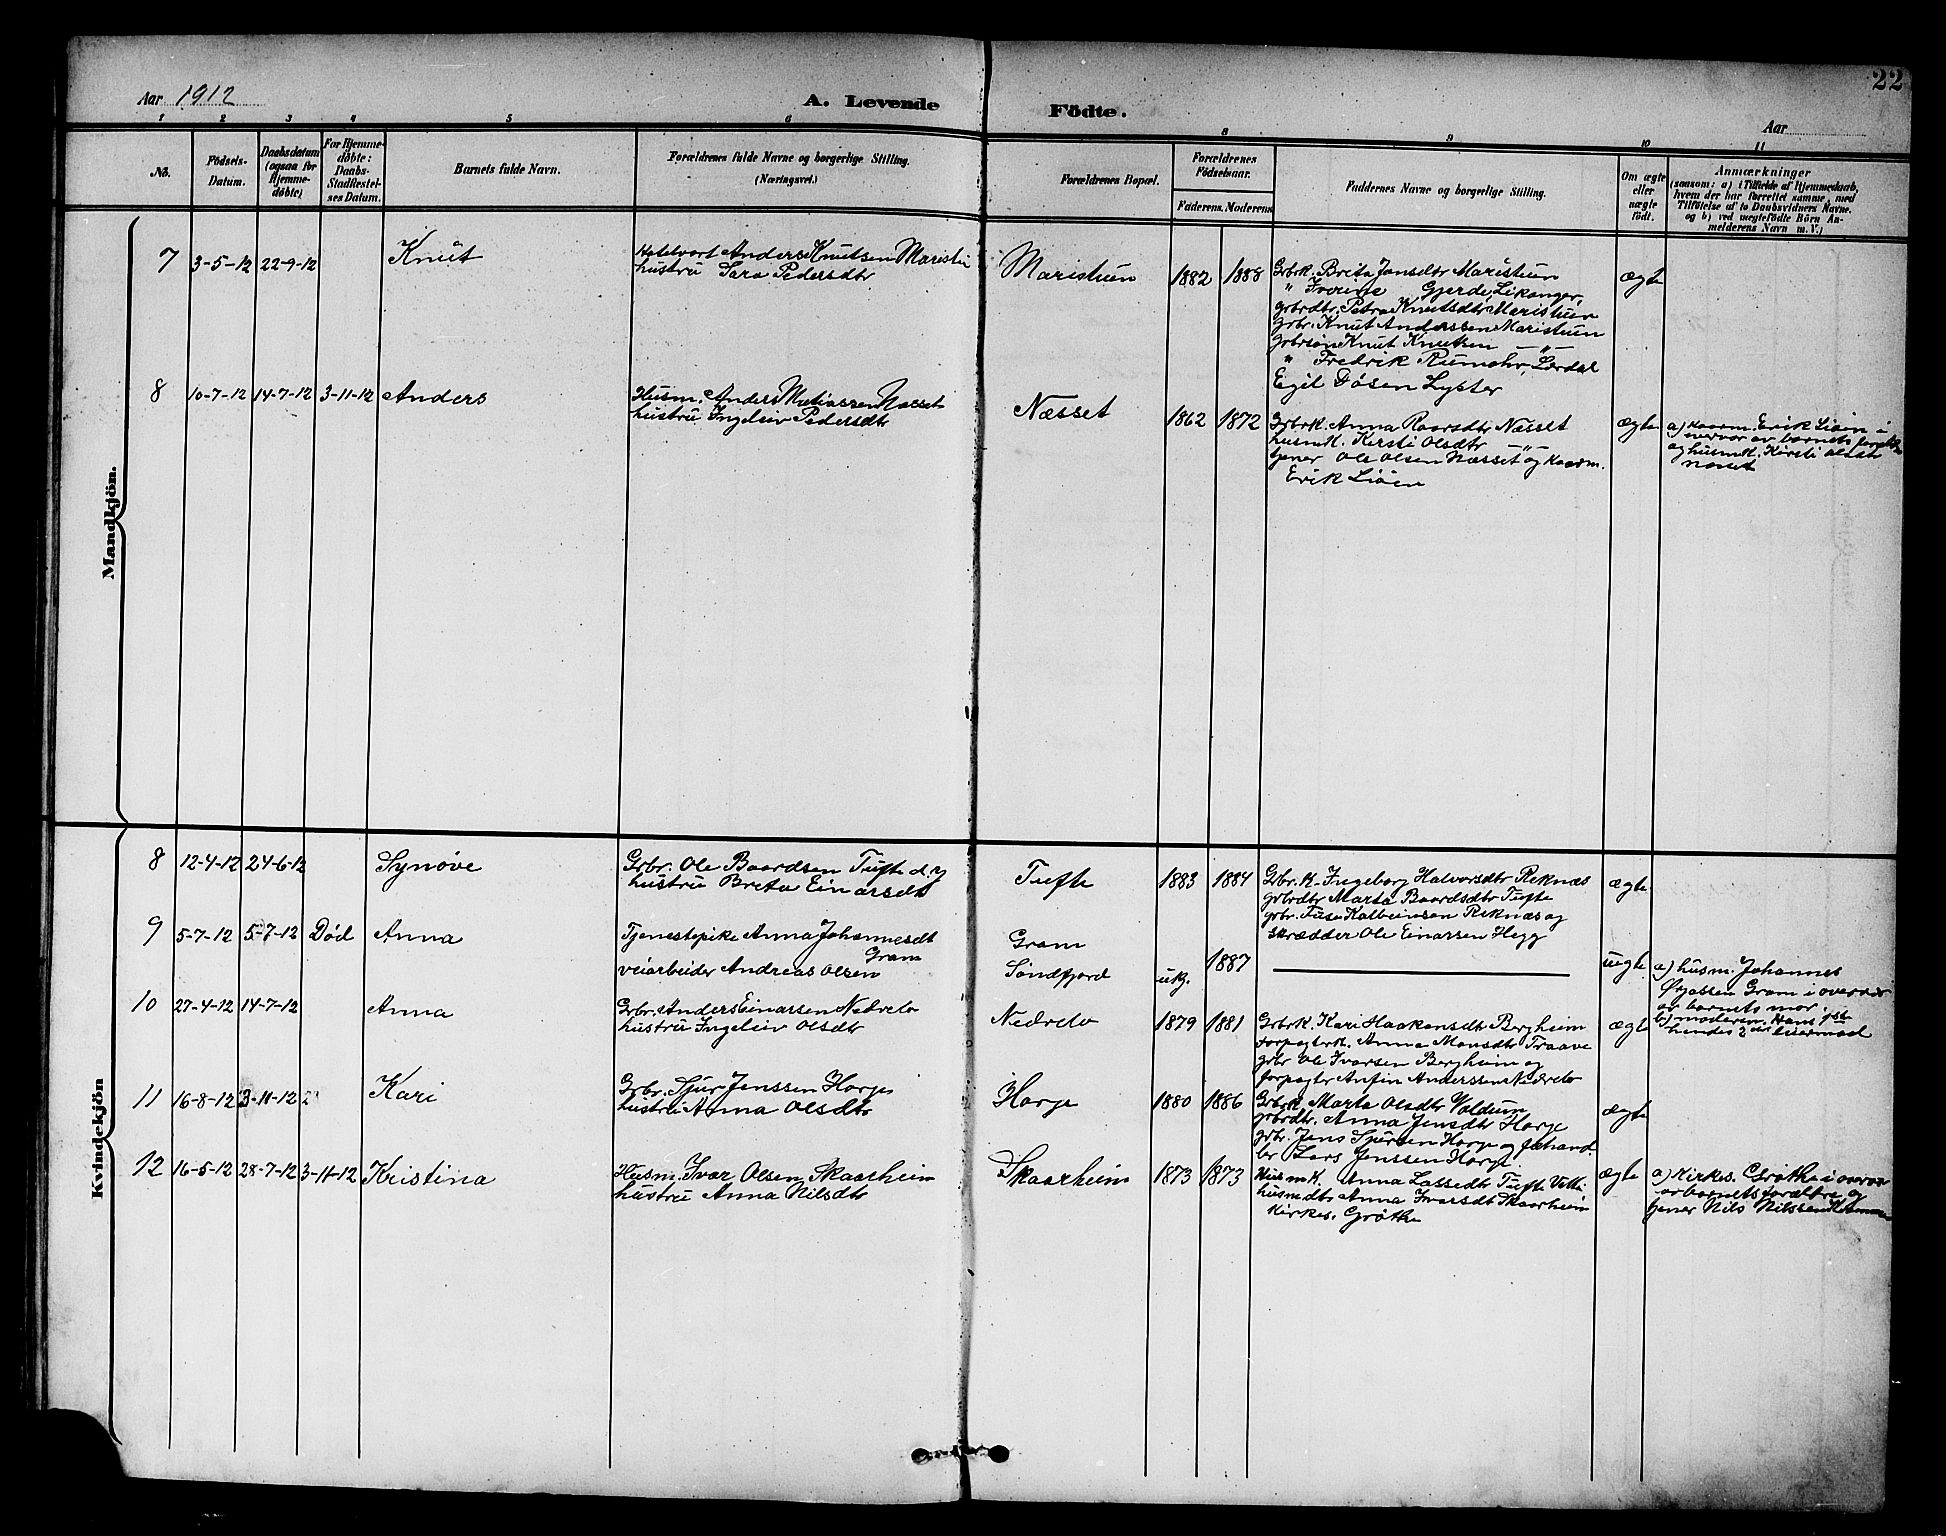 22
Aar 1912
A. Levende Födte.
Aar
1 2 3 4 5 6 8 9 10 11
No.
Födsels-Datum.
Daabsdatum (ogsaa for Hjemme-døbte)
For Hjemme-døbte: Daabs-Stadfæstel-ses Datum.
Barnets fulde Navn.
Forældrenes fulde Navne og borgerlige Stilling.
(Næringsvei.)
Forældrenes Bopæl.
Forældrenes Födselsaar.
Faderens. Moderens.
Faddernes Navne og borgerlige Stilling.
Om ægte eller uægte födt.
Anmærkninger
(saasom: a) i Tilfælde af Hjemmedaab,
hvem der har forrettet samme, med
Tilföielse af to Daabsvidners Navne.
og b) ved uægtefödte Börn An-
melderens Navn m. V.)
Mandkjön.
7 3-5-12 22-9-12 Knut
Hotelvært Anders Knutsen Maristu
hustru Sara Pedersdtr
Maristuen 1882 1888
Grbrk. Brita Jonsdtr Maristuen
" Iverine Gjerde, Leikanger,
grbrdtr. Petra Knutsdtr Maristuen
grbr. Knut Anderssen Maristuen
grbrsøn Knut Knutsen — " —
" Fredrik Rumohr, Lærdal
Egil Døsen Lyster
ægte
8 10-7-12 14-7-12 3-11-12 Anders
Husm. Anders Matiassen Næsset
hustru Ingeleiv Pedersdtr
Næsset 1862 1872
Grbrk. Anna Roarsdtr Næsset
husmk. Kersti Olsdtr — " —
tjener Ole Olsen Næsset og kaarm.
Erik Liøen
ægte
a) kaarm. Erik Liøen i
nervær av barnets foreldre
og husmk. Kirsti Olsdtr
Næsset
Kvindekjön
8 12-4-12 24-6-12 Synøve
Grbr. Ole Baardsen Tufte d.y
hustru Brita Einarsdtr
Tufte 1883 1884
Grbr.k. Ingeborg Halvorsdtr Reknæs
grbrdtr Marta Baardsdtr Tufte
grbr. Tuse Kolbeinsen Reknæs og
skrædder Ole Einarsen Hegg
ægte
9 5-7-12 5-7-12 Død Anna
Tjenestepike Anna Johannesdt
Gram
veiarbeider Andreas Olsen
Gram
Søndfjord
ukj. 1887
uegte
a) husm. Johannes
Gram i overvær
av barnets mor.
b) moderen. Hans 1ste
hendes 2det leiermaal
10 27-4-12 14-7-12 Anna
Grbr. Anders Einarssen Nedrelo
hustru Ingeleiv Olsdtr
Nedrelo 1879 1881
Grbrk. Kari Haakonsdtr Bergheim
forpagterk. Anna Monsdtr Traave
grbr Ole Ivarsen Bergheim og
forpagtr Anfin Anderssen Nedrelo
ægte
11 16-8-12 3-11-12 Kari
Grbr. Sjur Jenssen Horge
hustru Anna Olsdtr
Horge 1880 1886
Grbrk. Marta Olsdtr Voldum
grbrdtr. Anna Jensdtr Horge
grbr. Jens Sjursen Horge og
br Lars Jenssen Horge
ægte
12 16-5-12 28-7-12 3-11-12 Kristina
Husm. Ivar Olsen Skaarheim
hustru Anna Nilsdtr
Skaarheim 1873 1873
Husmk. Anna Lassedtr Tufte
husmdtr Anna Ivarsdt Skaarheim
kirkes. Grøthe
ægte
a) Kirkes. Grøthe i overvær
av barnets foræltre og
tjener Nils Nilssen